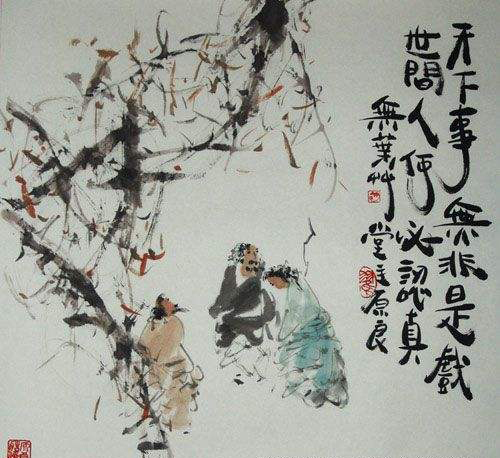 天下事無非是戲
世間人何必認真
無葉艸堂主原良